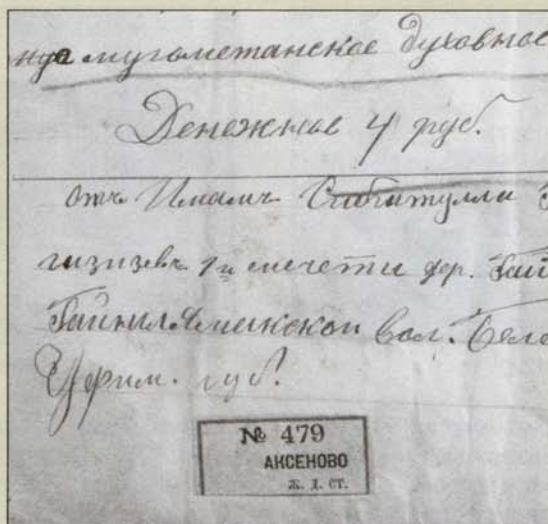 мугометанское духовное
Денежное 4 руб.
отъ Имамъ Сибагатулла
1й мечети дер.
вол. Белеб
Уфим. губ.
№ 479
АКСЕНОВО
Ж. Д. СТ.